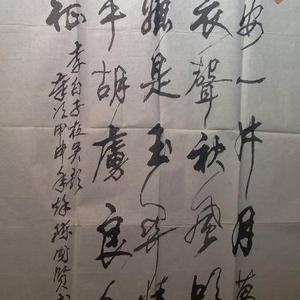 安一片月萬
衣聲秋風吹
總是玉關情
平胡虜良人
征
李白子夜吳歌
歲次甲申年